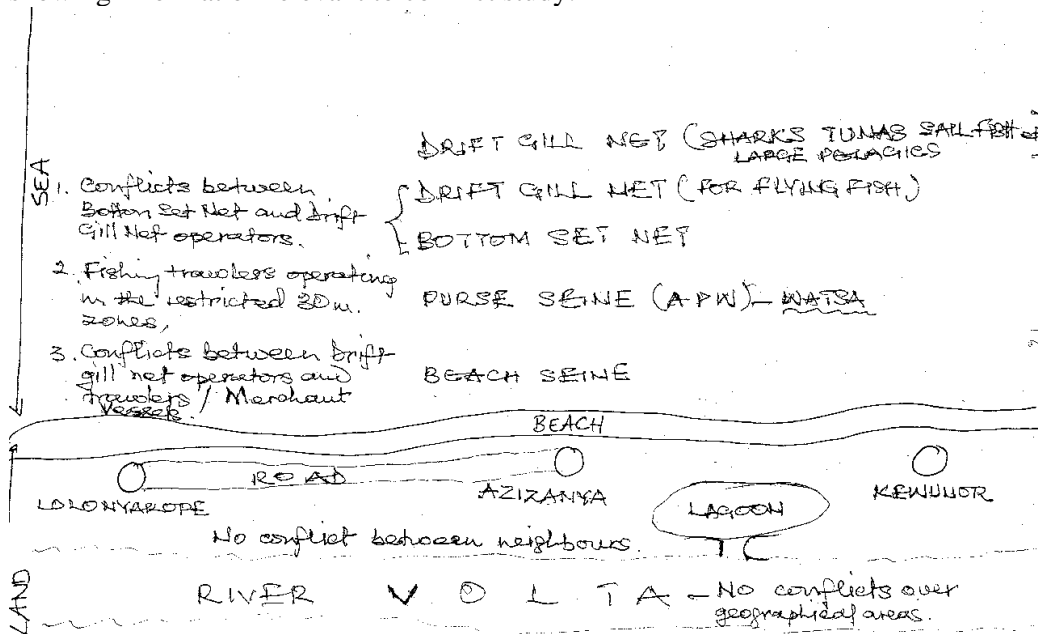 DRIFT GILL NET (SHARKS TUNAS SAILFISH
LARGE PELAGICS
SEA
1. Conflicts between
Bottom Set Net and Drift
Gill Net operators.
DRIFT GILL NET (FOR FLYING FISH)
BOTTOM SET NET
2. Fishing trawlers operating
in the restricted 30m.
zones,
PURSE SEINE (APW) - WATSA
3. Conflicts between Drift
gill net operators and
trawlers / Merchant
Vessels.
BEACH SEINE
BEACH
ROAD
LOLONYAKOPE
AZIZANYA
LAGOON
KEWUNOR
No conflict between neighbours.
LAND
RIVER VOLTA - No conflicts over
geographical areas.